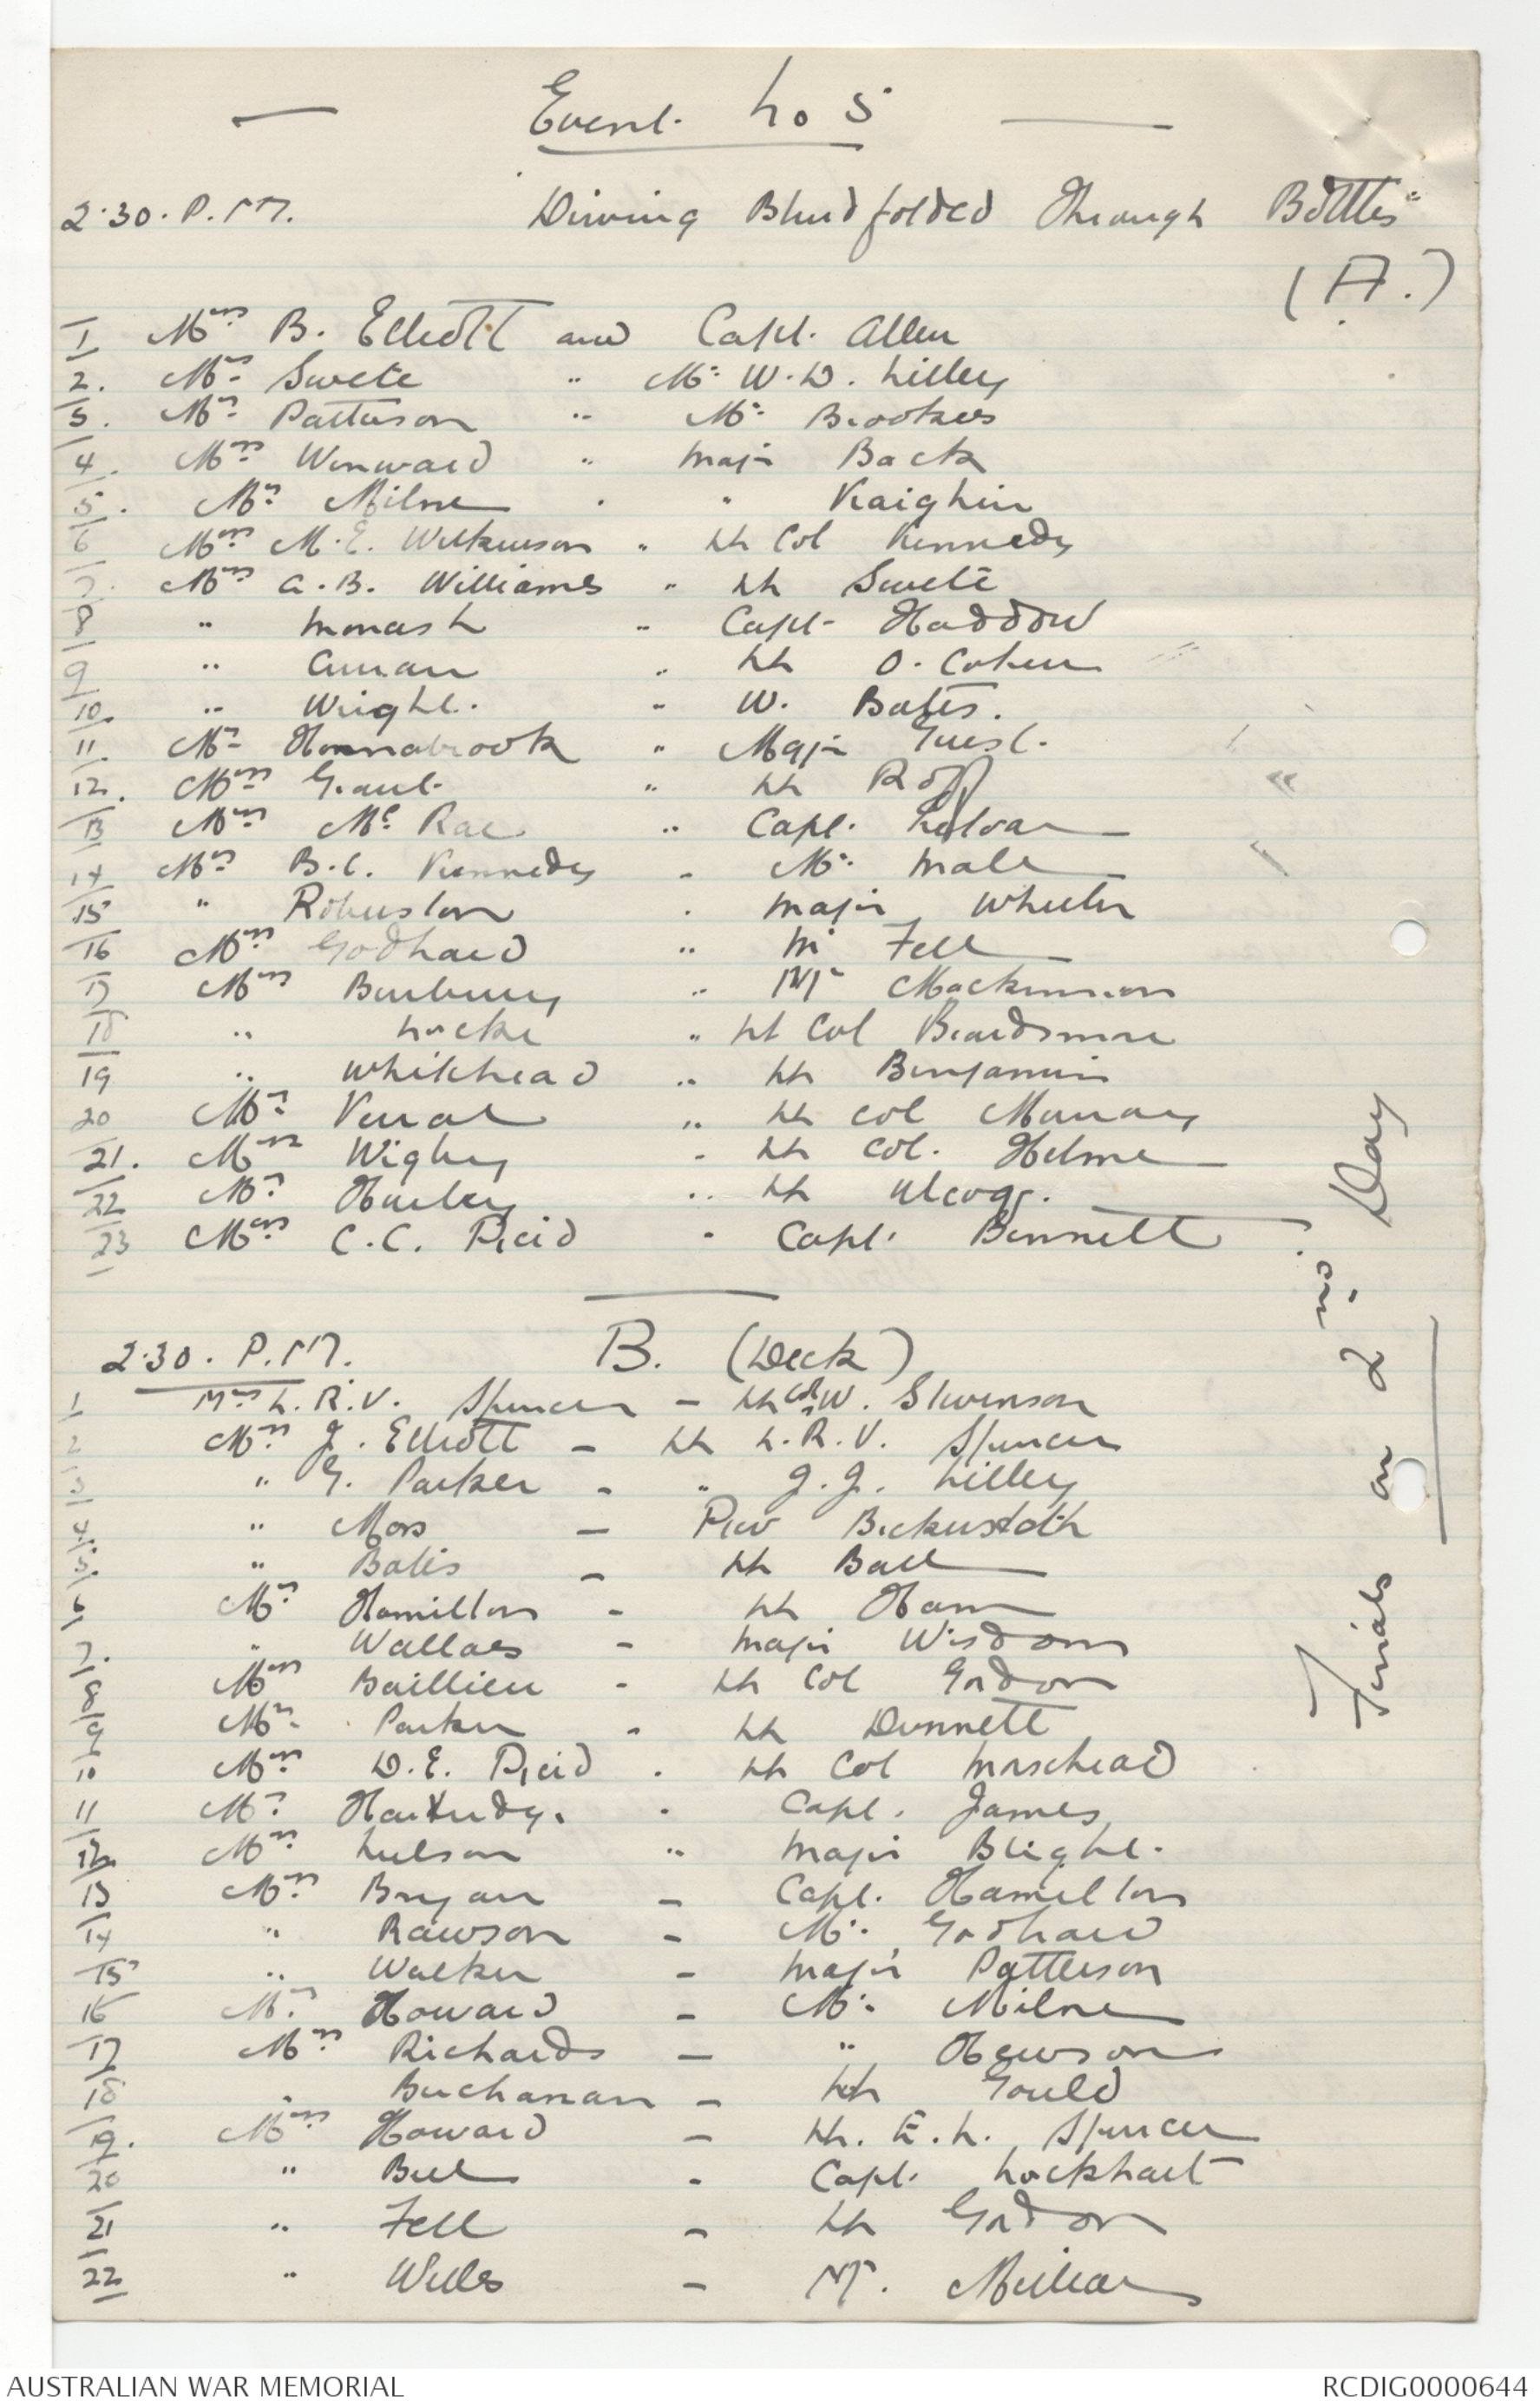 Event No 5
2.30. P.M. Driving Blindfolded Through Bottles
(A.)
1 Mrs B. Elliott and Capt. Allen
2. Mrs Swete " Mr W.D. Lilley
3. Mrs Patterson " Mr Brookes
4. Miss Winward " Major Back
5. Mrs Milne " " Kaighin
6 Miss M.E. Wilkinson " Lt Col Kennedy
7. Miss A.B. Williams " Lt Swete
8 " Monash " Capt Haddow
9 " " Lt O. Cohen
10. " Wright. " W. Bates.
11. Mrs Hannabrook " Major Guest.
12. Miss Grant " Lt Roff
13 Miss McRae " Capt.
14 Mrs B.C. Kennedy " Mr. Male
15 " Robertson " Major Wheeler
16 Miss Godhard " Mr Fell
17 Miss Burbury " Mr Mackinnon
18 " Locke " Lt Col Beardsmore
19 " Whitehead " Lt Benjamin
20 Mrs " Lt Col Murray
21. Miss Wigley " Lt Col. Helme
22 Mrs Hurley " Lt
23 Miss C.C. Reid " Capt. Bennett
2.30. P.M. B. (Deck)
1 Mrs L.R.V. Spencer - Lt Col W. Stevenson
2 Miss J. Elliott - Lt L.R.V. Spencer
3 " G. Parker - " J.J. Lilley
4. " Moss -
5. " Bates - Lt Ball
6 Mrs Hamilton - Lt Ham
7. " Wallace - Major Wisdom
8 Miss Baillieu - Lt Col Gordon
9 Mrs Parker - Lt Dunnett
10 Miss D.E. Reid - Lt Col Morshead
11 Mrs - Capt. James
12. Miss Nelson " Major Blight.
13 Miss Bryan - Capt. Hamilton
14 " Rawson - Mr. Godhard
15 " Walker - Major Patterson
16 Mrs Howard - Mr. Milne
17 Miss Richards - " Hewson
18 " Buchanan - Lt Gould
19. Miss Howard - Lt. E.L. Spencer
20 " Bell - Capt. Lockhart
21 " Fell - Lt Gordon
22 " Wells - Mr.
Finals on 2nd Day
AUSTRALIAN WAR MEMORIAL RCDIG0000644